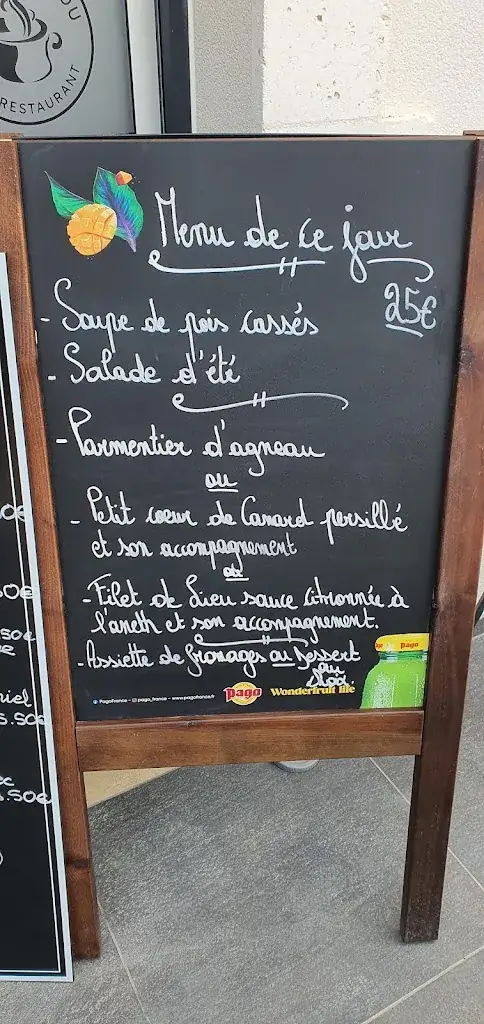 OU
RESTAURANT
Menu de ce jour
25€
- Soupe de pois cassés
- Salade d'été
- Parmentier d'agneau
ou
- Petit coeur de Canard persillé
et son accompagnement
ou
- Filet de Lieu sauce citronnée à
l'aneth et son accompagnement.
- Assiette de fromages ou Dessert
au
choix.
PagoFrance - pago_france - www.pagofrance.fr
Pago Wonderfruit life
Pago
0€
.50€
iel
.50€
.50€